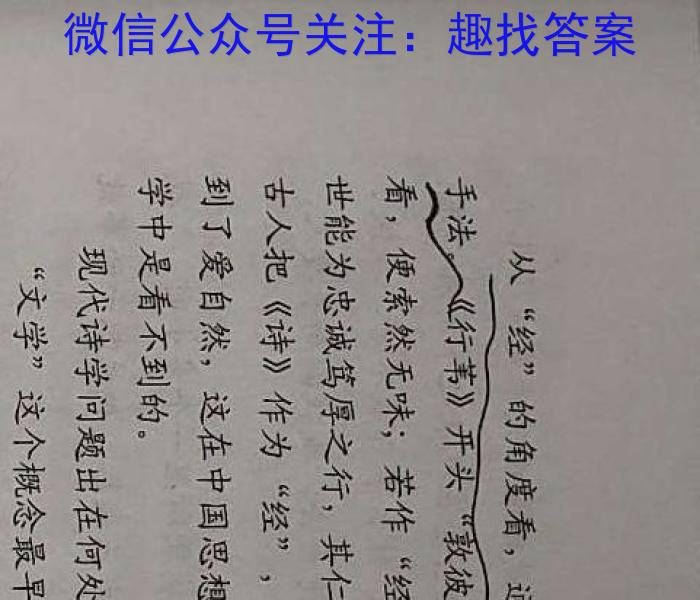 微信公众号关注：趣找答案
从“经”的角度看，
手法。《行苇》开头“敦彼
看，便索然无味；若作“经
世能为忠诚笃厚之行，其仁
古人把《诗》作为“经”，
到了爱自然，这在中国思想
学中是看不到的。
现代诗学问题出在何处
“文学”这个概念最早